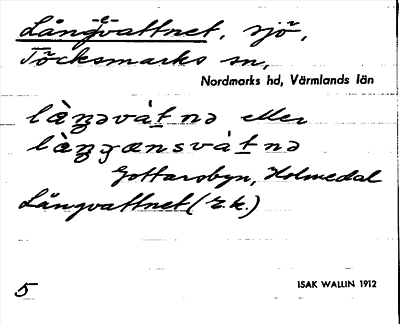 Långevattnet, sjö,
Töcksmarks sn,
Nordmarks hd, Värmlands län
låŋəvàtnə eller
Gottarsbyn, Holmedal
Långvattnet (r.k.)
5
ISAK WALLIN 1912